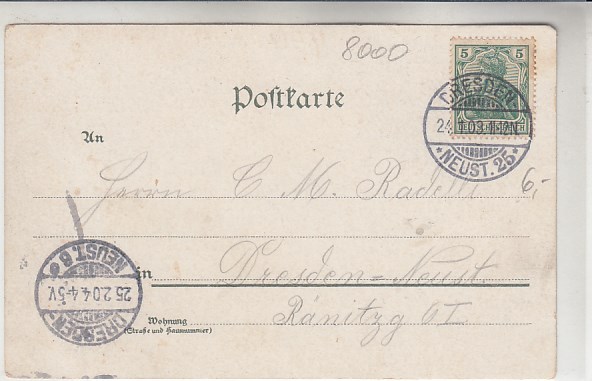 8000
5 5
Postkarte
DRESDEN
NEUST. 25
An
Herrn C M.
6,-
NEUST. 6
25.2.04.4-5V.
DRESDEN
in Dresden=Neust.
Wohnung
(Straße und Hausnummer)
Ränitzg 6 I.